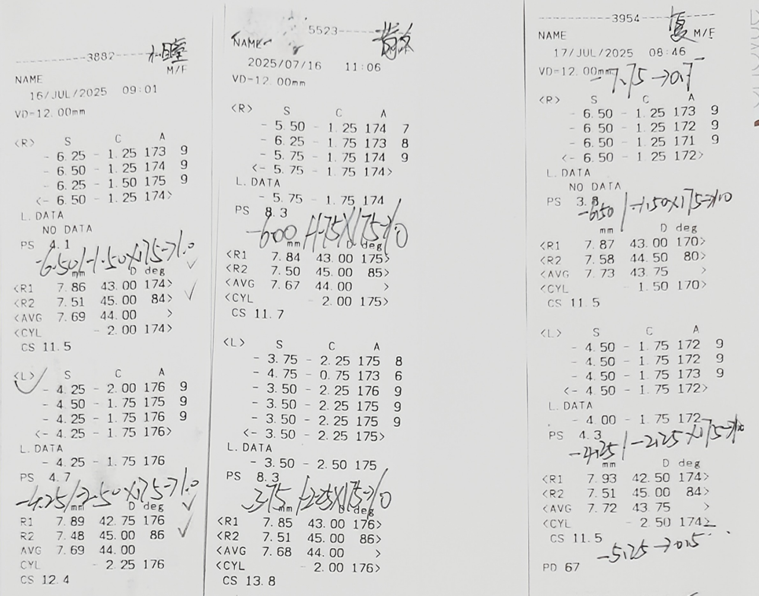 3882 小瞳
M/F
NAME
16/JUL/2025 09:01
VD=12.00mm
<R> S C A
- 6.25 - 1.25 173 9
- 6.50 - 1.25 174 9
- 6.25 - 1.50 175 9
<- 6.50 - 1.25 174>
L.DATA
NO DATA
PS 4.1
-6.50/-1.50×175→1.0
mm D deg
<R1 7.86 43.00 174>
<R2 7.51 45.00 84>
<AVG 7.69 44.00 >
<CYL - 2.00 174>
CS 11.5
<L> S C A
- 4.25 - 2.00 176 9
- 4.50 - 1.75 175 9
- 4.25 - 1.75 176 9
<- 4.25 - 1.75 176>
L.DATA
- 4.25 - 1.75 176
PS 4.7
-4.25/-2.50×175→1.0
mm D deg
R1 7.89 42.75 176
R2 7.48 45.00 86
AVG 7.69 44.00
CYL - 2.25 176
CS 12.4
5523
NAME
2025/07/16 11:06
VD=12.00mm
<R> S C A
- 5.50 - 1.25 174 7
- 6.25 - 1.75 173 8
- 5.75 - 1.75 174 9
<- 5.75 - 1.75 174>
L.DATA
- 5.75 - 1.75 174
PS 8.3
-6.00/-1.75×175→1.0
mm D deg
<R1 7.84 43.00 175>
<R2 7.50 45.00 85>
<AVG 7.67 44.00 >
<CYL - 2.00 175>
CS 11.7
<L> S C A
- 3.75 - 2.25 175 8
- 4.75 - 0.75 173 6
- 3.50 - 2.25 176 9
- 3.50 - 2.25 175 9
<- 3.50 - 2.25 175>
L.DATA
- 3.50 - 2.50 175
PS 8.3
-3.75/-2.25×175→1.0
mm D deg
<R1 7.85 43.00 176>
<R2 7.51 45.00 86>
<AVG 7.68 44.00 >
<CYL - 2.00 176>
CS 13.8
3954 复
NAME M/F
17/JUL/2025 08:46
VD=12.00mm -7.75→0.7
<R> S C A
- 6.50 - 1.25 173 9
- 6.50 - 1.25 172 9
- 6.50 - 1.25 171 9
<- 6.50 - 1.25 172>
L.DATA
NO DATA
PS 3.8
-6.50/-1.50×175→1.0
mm D deg
<R1 7.87 43.00 170>
<R2 7.58 44.50 80>
<AVG 7.73 43.75 >
<CYL - 1.50 170>
CS 11.5
<L> S C A
- 4.50 - 1.75 172 9
- 4.50 - 1.75 172 9
- 4.50 - 1.75 173 9
<- 4.50 - 1.75 172>
L.DATA
- 4.00 - 1.75 172
PS 4.3
-4.25/-2.25×175→1.0
mm D deg
<R1 7.93 42.50 174>
<R2 7.51 45.00 84>
<AVG 7.72 43.75 >
<CYL - 2.50 174>
CS 11.5
-5.25→0.5
PD 67